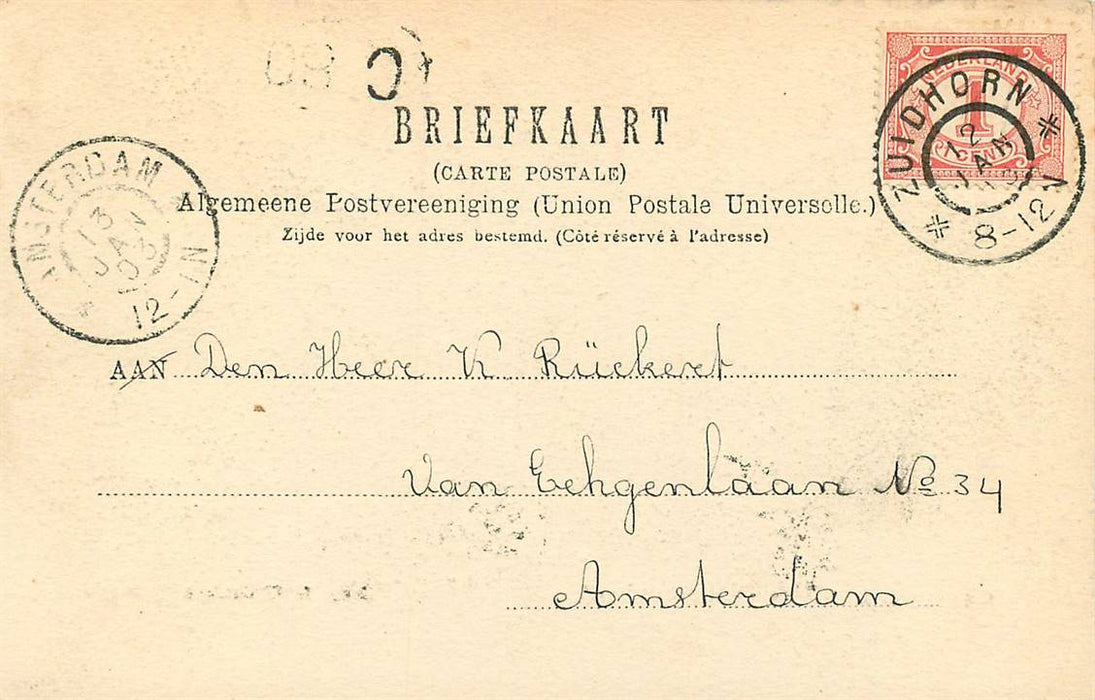 NEDERLAND
1
CENT
ZUIDHORN
12
JAN
8-12V
C
BRIEFKAART
(CARTE POSTALE)
Algemeene Postvereeniging (Union Postale Universelle.)
Zijde voor het adres bestemd. (Côté réservé à l'adresse)
AMSTERDAM
13
JAN
03
12-1N
AAN Den Heer K Rückert
Van Eehgenlaan No 34
Amsterdam